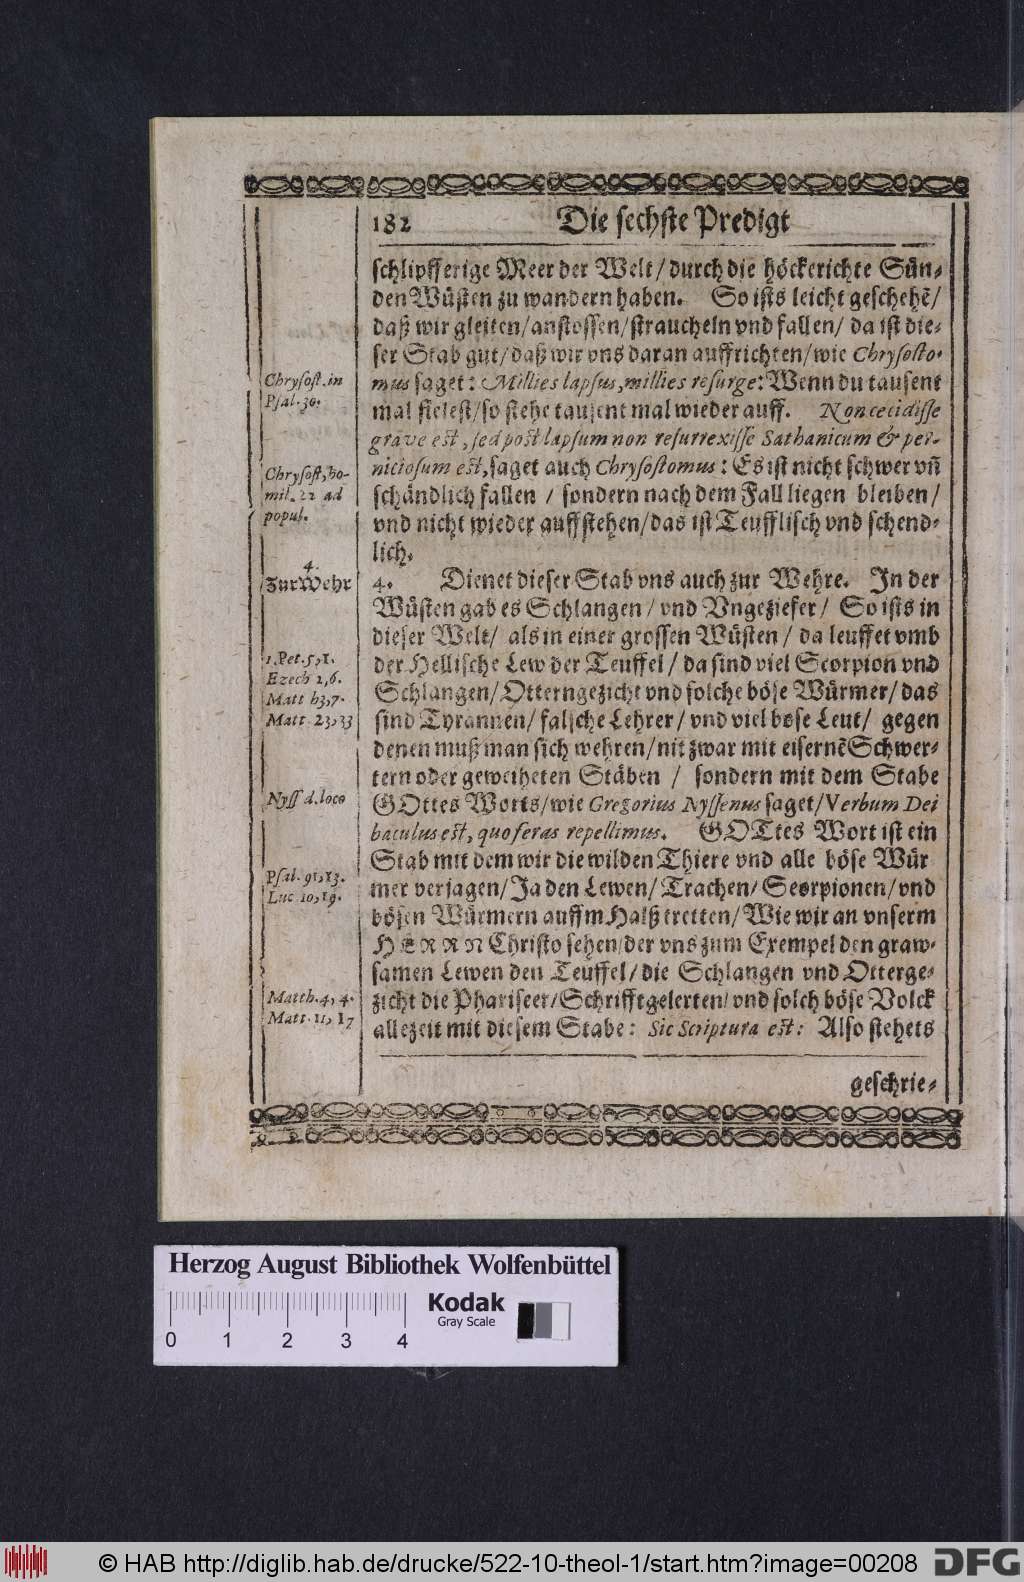 182 Die sechste Predigt
schlipfferige Meer der Welt/durch die höckerichte Sün-
den Wüsten zu wandern haben. So ists leicht geschehē/
daß wir gleiten/anstossen/straucheln vnd fallen/ da ist die-
ser Stab gut/daß wir vns daran auffrichten/wie Chrysosto-
mus saget: Millies lapsus, millies resurge: Wenn du tausent
mal fielest/so stehe tausent mal wieder auff. Non cecidisse
grave est, sed post lapsum non resurrexisse Sathanicum & per-
niciosum est, saget auch Chrysostomus: Es ist nicht schwer vn̄
schändlich fallen / sondern nach dem Fall liegen bleiben/
vnd nicht wieder auffstehen/das ist Teufflisch vnd schend-
lich.
4. Dienet dieser Stab vns auch zur Wehre. In der
Wüsten gab es Schlangen/vnd Vngeziefer/ So ists in
dieser Welt/ als in einer grossen Wüsten/ da leuffet vmb
der Hellische Lew der Teuffel/da sind viel Scorpion vnd
Schlangen/Otterngezicht vnd solche böse Würmer/das
sind Tyrannen/falsche Lehrer/vnd viel bose Leut/ gegen
denen muß man sich wehren/nit zwar mit eisernē Schwer-
tern oder geweiheten Stäben / sondern mit dem Stabe
GOttes Worts/wie Gregorius Nyssenus saget/Verbum Dei
baculus est, quo feras repellimus. GOTtes Wort ist ein
Stab mit dem wir die wilden Thiere vnd alle böse Wür
mer verjagen/Ja den Lewen/Trachen/Scorpionen/vnd
bösen Würmern auffm Halß tretten/Wie wir an vnserm
HERRN Christo sehen/der vns zum Exempel den graw-
samen Lewen den Teuffel/die Schlangen vnd Otterge-
zicht die Phariseer/Schrifftgelerten/vnd solch böse Volck
allezeit mit diesem Stabe: Sic Scriptura est: Also stehets
geschrie-
Chrysost. in
Psal. 30.
Chrysost, ho-
mil. 22 ad
popul.
4.
Zur Wehr
1. Pet. 5, 1.
Ezech 2, 6.
Matt h3, 7.
Matt. 23, 33
Nyss d. loco
Psal. 91, 13.
Luc 10, 19.
Matth. 4, 4.
Matt. 11, 17
Herzog August Bibliothek Wolfenbüttel
Kodak
Gray Scale
0 1 2 3 4
© HAB http://diglib.hab.de/drucke/522-10-theol-1/start.htm?image=00208
DFG